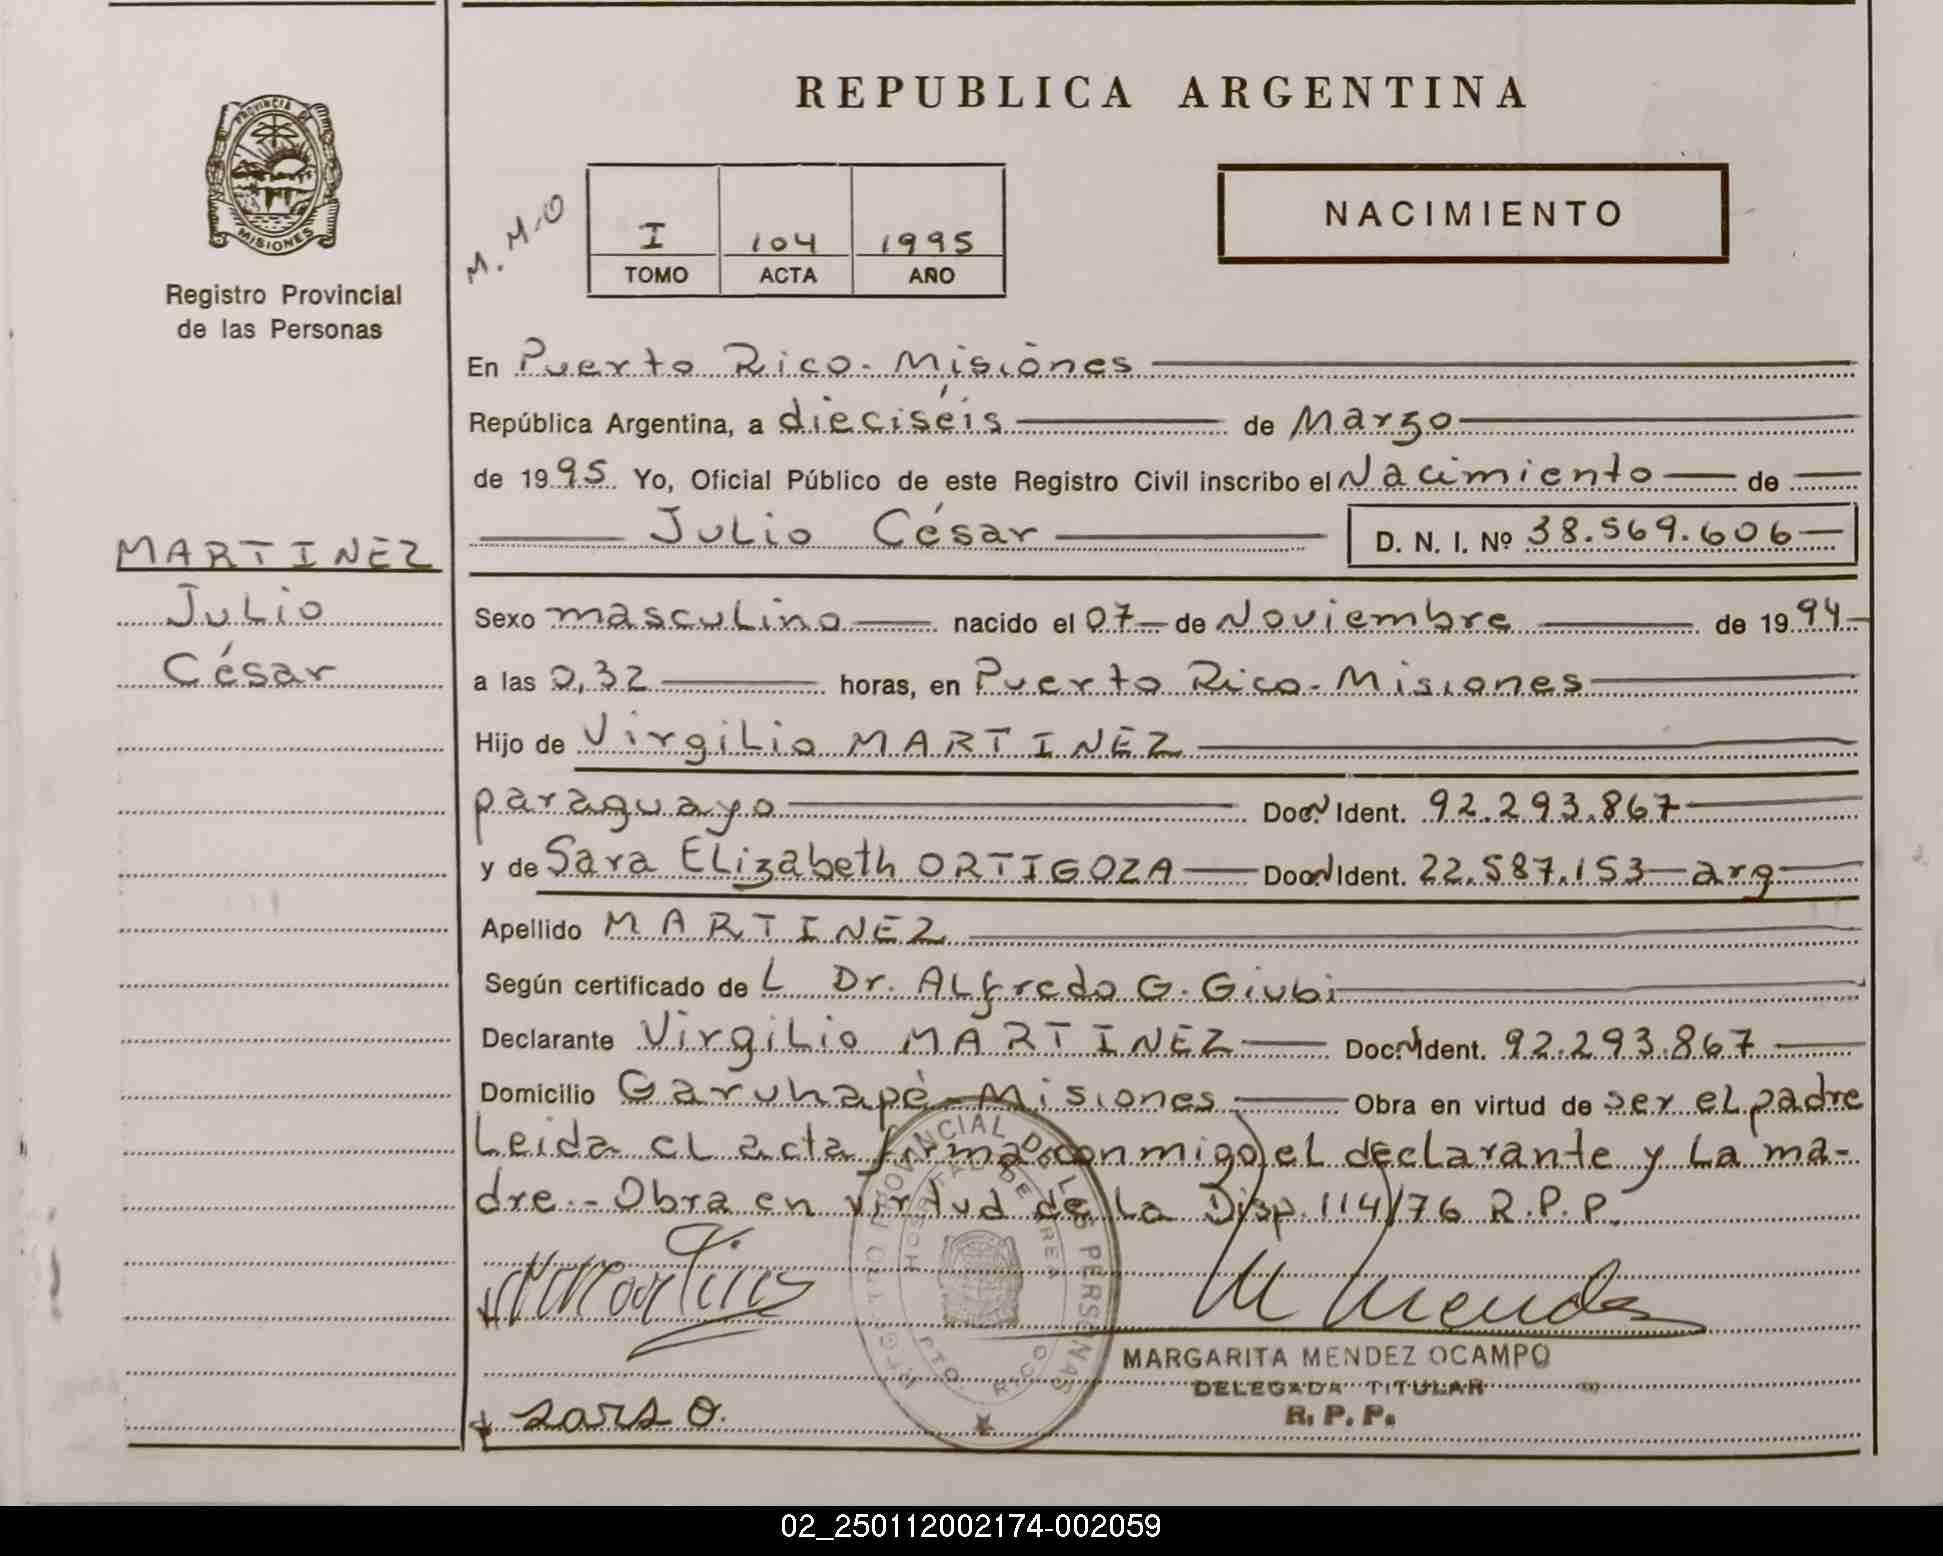 REPUBLICA ARGENTINA
PROVINCIA DE
MISIONES
Registro Provincial
de las Personas
M. M. O
I 104 1995
TOMO ACTA AÑO
NACIMIENTO
En Puerto Rico - Misiones
República Argentina, a dieciséis de Marzo
de 1995 Yo, Oficial Público de este Registro Civil inscribo el Nacimiento de
Julio César D. N. I. Nº 38.569.606
MARTINEZ
Julio
César
Sexo masculino nacido el 07 de Noviembre de 1994
a las 0,32 horas, en Puerto Rico - Misiones
Hijo de Virgilio MARTINEZ
paraguayo Doc. N Ident. 92.293.867
y de Sara Elizabeth ORTIGOZA Doc. N Ident. 22.587.153 arg
Apellido MARTINEZ
Según certificado de L Dr. Alfredo G. Giubi
Declarante Virgilio MARTINEZ Doc. N Ident. 92.293.867
Domicilio Garuhapé - Misiones Obra en virtud de ser el padre
Leida el acta firma conmigo el declarante y la ma-
dre. - Obra en virtud de la Disp. 114/76 R.P.P.
PROVINCIAL DE LAS PERSONAS
HOSPITAL DE AREA
PTO. RICO
M Mendez
MARGARITA MENDEZ OCAMPO
DELEGADA TITULAR
R. P. P.
02_250112002174-002059